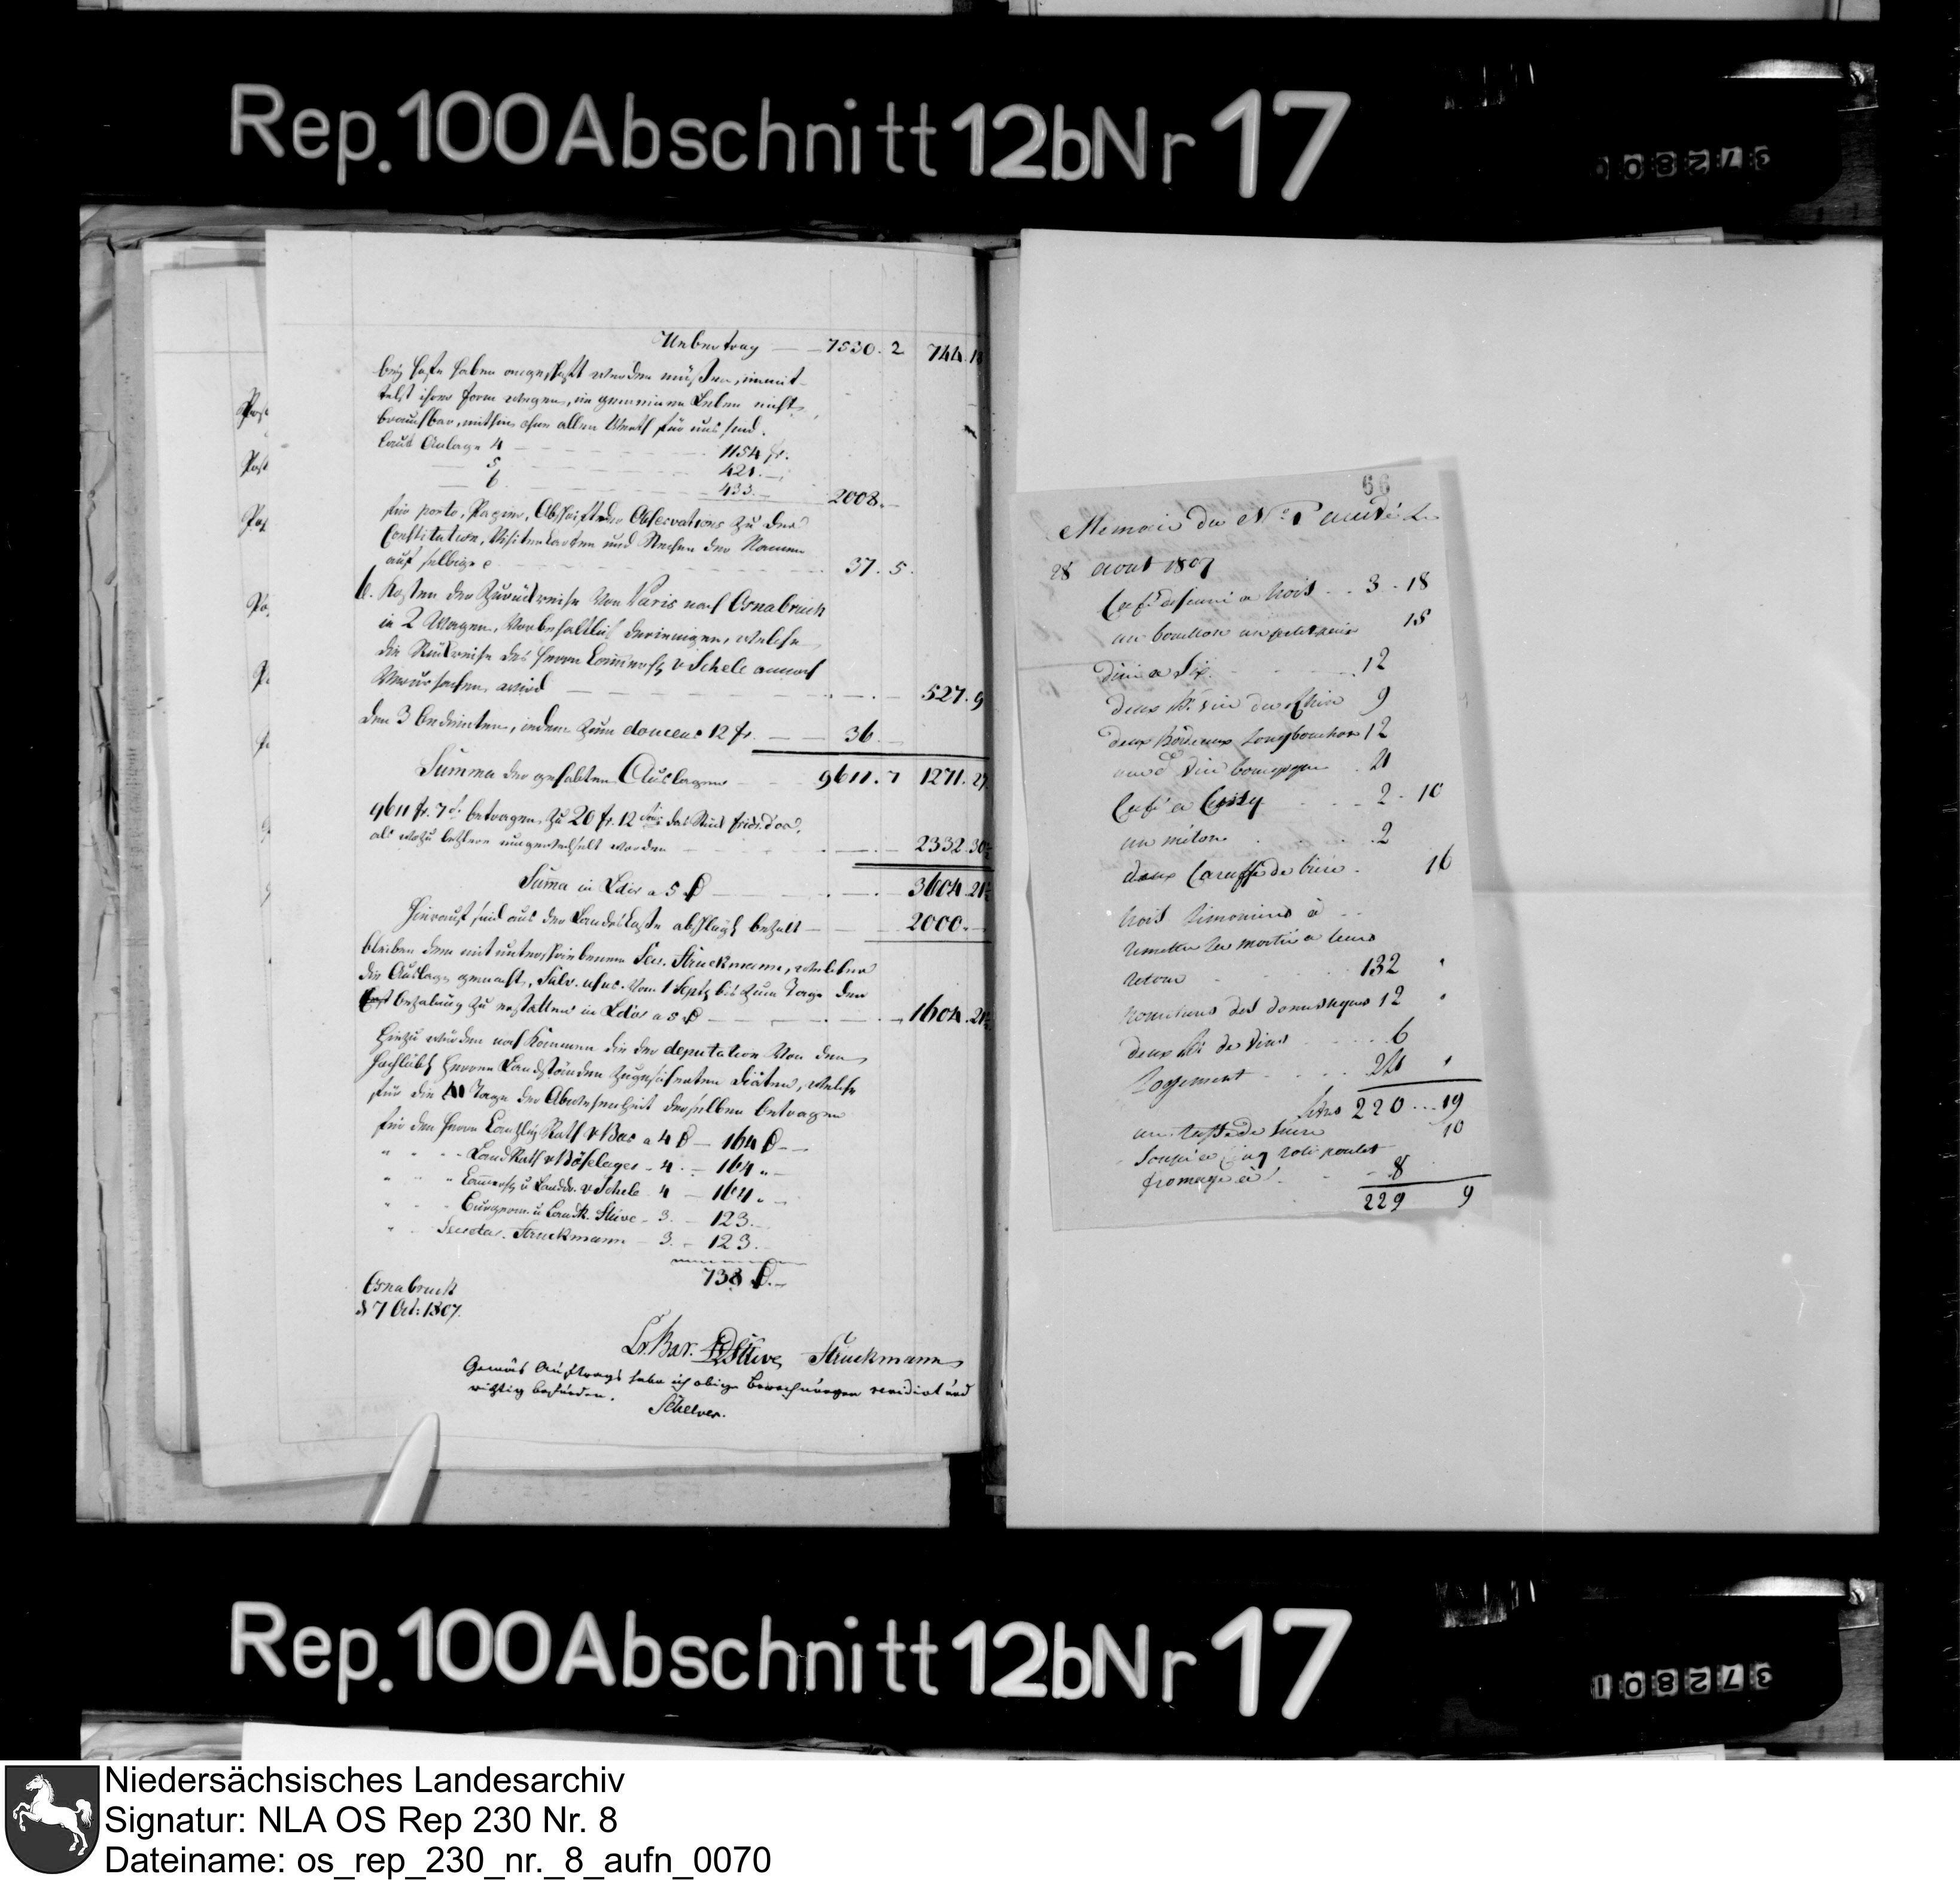 Rep. 100 Abschnitt 12b Nr 17
372800
Uebertrag — 7530. 2 744. 18
bey Hofe haben angeschafft werden müssen, inmit-
telst ihrer Form wegen, im gemeinen Leben nicht
brauchbar, mithin ohne allen Werth für uns sind.
Laut Anlage 4 — 1154 fr.
— 5 — 421. —
— 6 — 433. — 2008. —
für porto, Papier, Abschrift der Observations zu der
Constitution, Visitenkarten und Stechen der Namen
auf selbige — 37. 5.
6. Kosten der Zurückreise von Paris nach Osnabrück
in 2 Wagen, vorbehaltlich derienigen, welche
die Rückreise des Herrn v Schele annoch
verursachen wird — 527. 9
den 3 bedienten, jedem zum douceur 12 fr. — 36. —
Summa der gehabten Auslagen — 9611. 7 1271. 27
9611 fr. 7 s. betragen, zu 20 fr. 12 das Stück
als wozu letztere umgewechselt worden — 2332. 30
Summa in Ldor a 5 — 3604. 21
Hierauf sind aus der Landes Casse abschlägl. bezalt — 2000. —
bleiben dem mit unterschriebenen Secr. Struckmann, welcher
die Auslage gemacht, vom 1 Sept. bis zum Tage der
bezalung zu erstatten in Ldor a 5 — 1604. 21
Hiezu würden noch kommen die der deputation von den
Herren Landständen zugesicherten Diäten, welche
für die 41 Tage der Abwesenheit derselben betragen
für den Herrn Rath v Bar a 4 — 164 —
" LandRath v Böselager - 4. — 164 " —
" v Schele 4 — 164. —
" Stüve - 3. — 123. —
" Secretar. Struckmann — 3. — 123. —
738 —
Osnabruck
d 7 Oct: 1807.
v. Bar. Stüve Struckmann
Gemäs Auftrags habe ich obige Berechnungen revidirt und
richtig befunden.
Schelver.
66
Memoir du
28 aout 1807
Café a trois . . 3 - 18
un bouillon 18
Diné a Six . . 12
deux vin du Rhin 9
deux Bordeaux 12
vin bourgogne . 21
Café a . . . 2 - 10
un melon . . . 2
deux Caraffe de bière . 16
trois à . .
a leur
retour . . . 132
des domestiques 12
deux de vins . . . 6
Logement . . . 24
220 . . . 19
un de bière 10
Soupé a poulet
fromage . . 8
229 9
Rep. 100 Abschnitt 12b Nr 17
372801
Niedersächsisches Landesarchiv
Signatur: NLA OS Rep 230 Nr. 8
Dateiname: os_rep_230_nr._8_aufn_0070